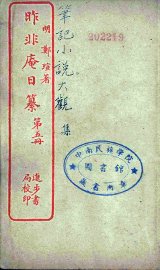 筆記小說大觀 集
202219
明 鄭瑄著
昨非庵日纂 第五冊
進步書局校印
中南民族學院
圖書館
藏書章